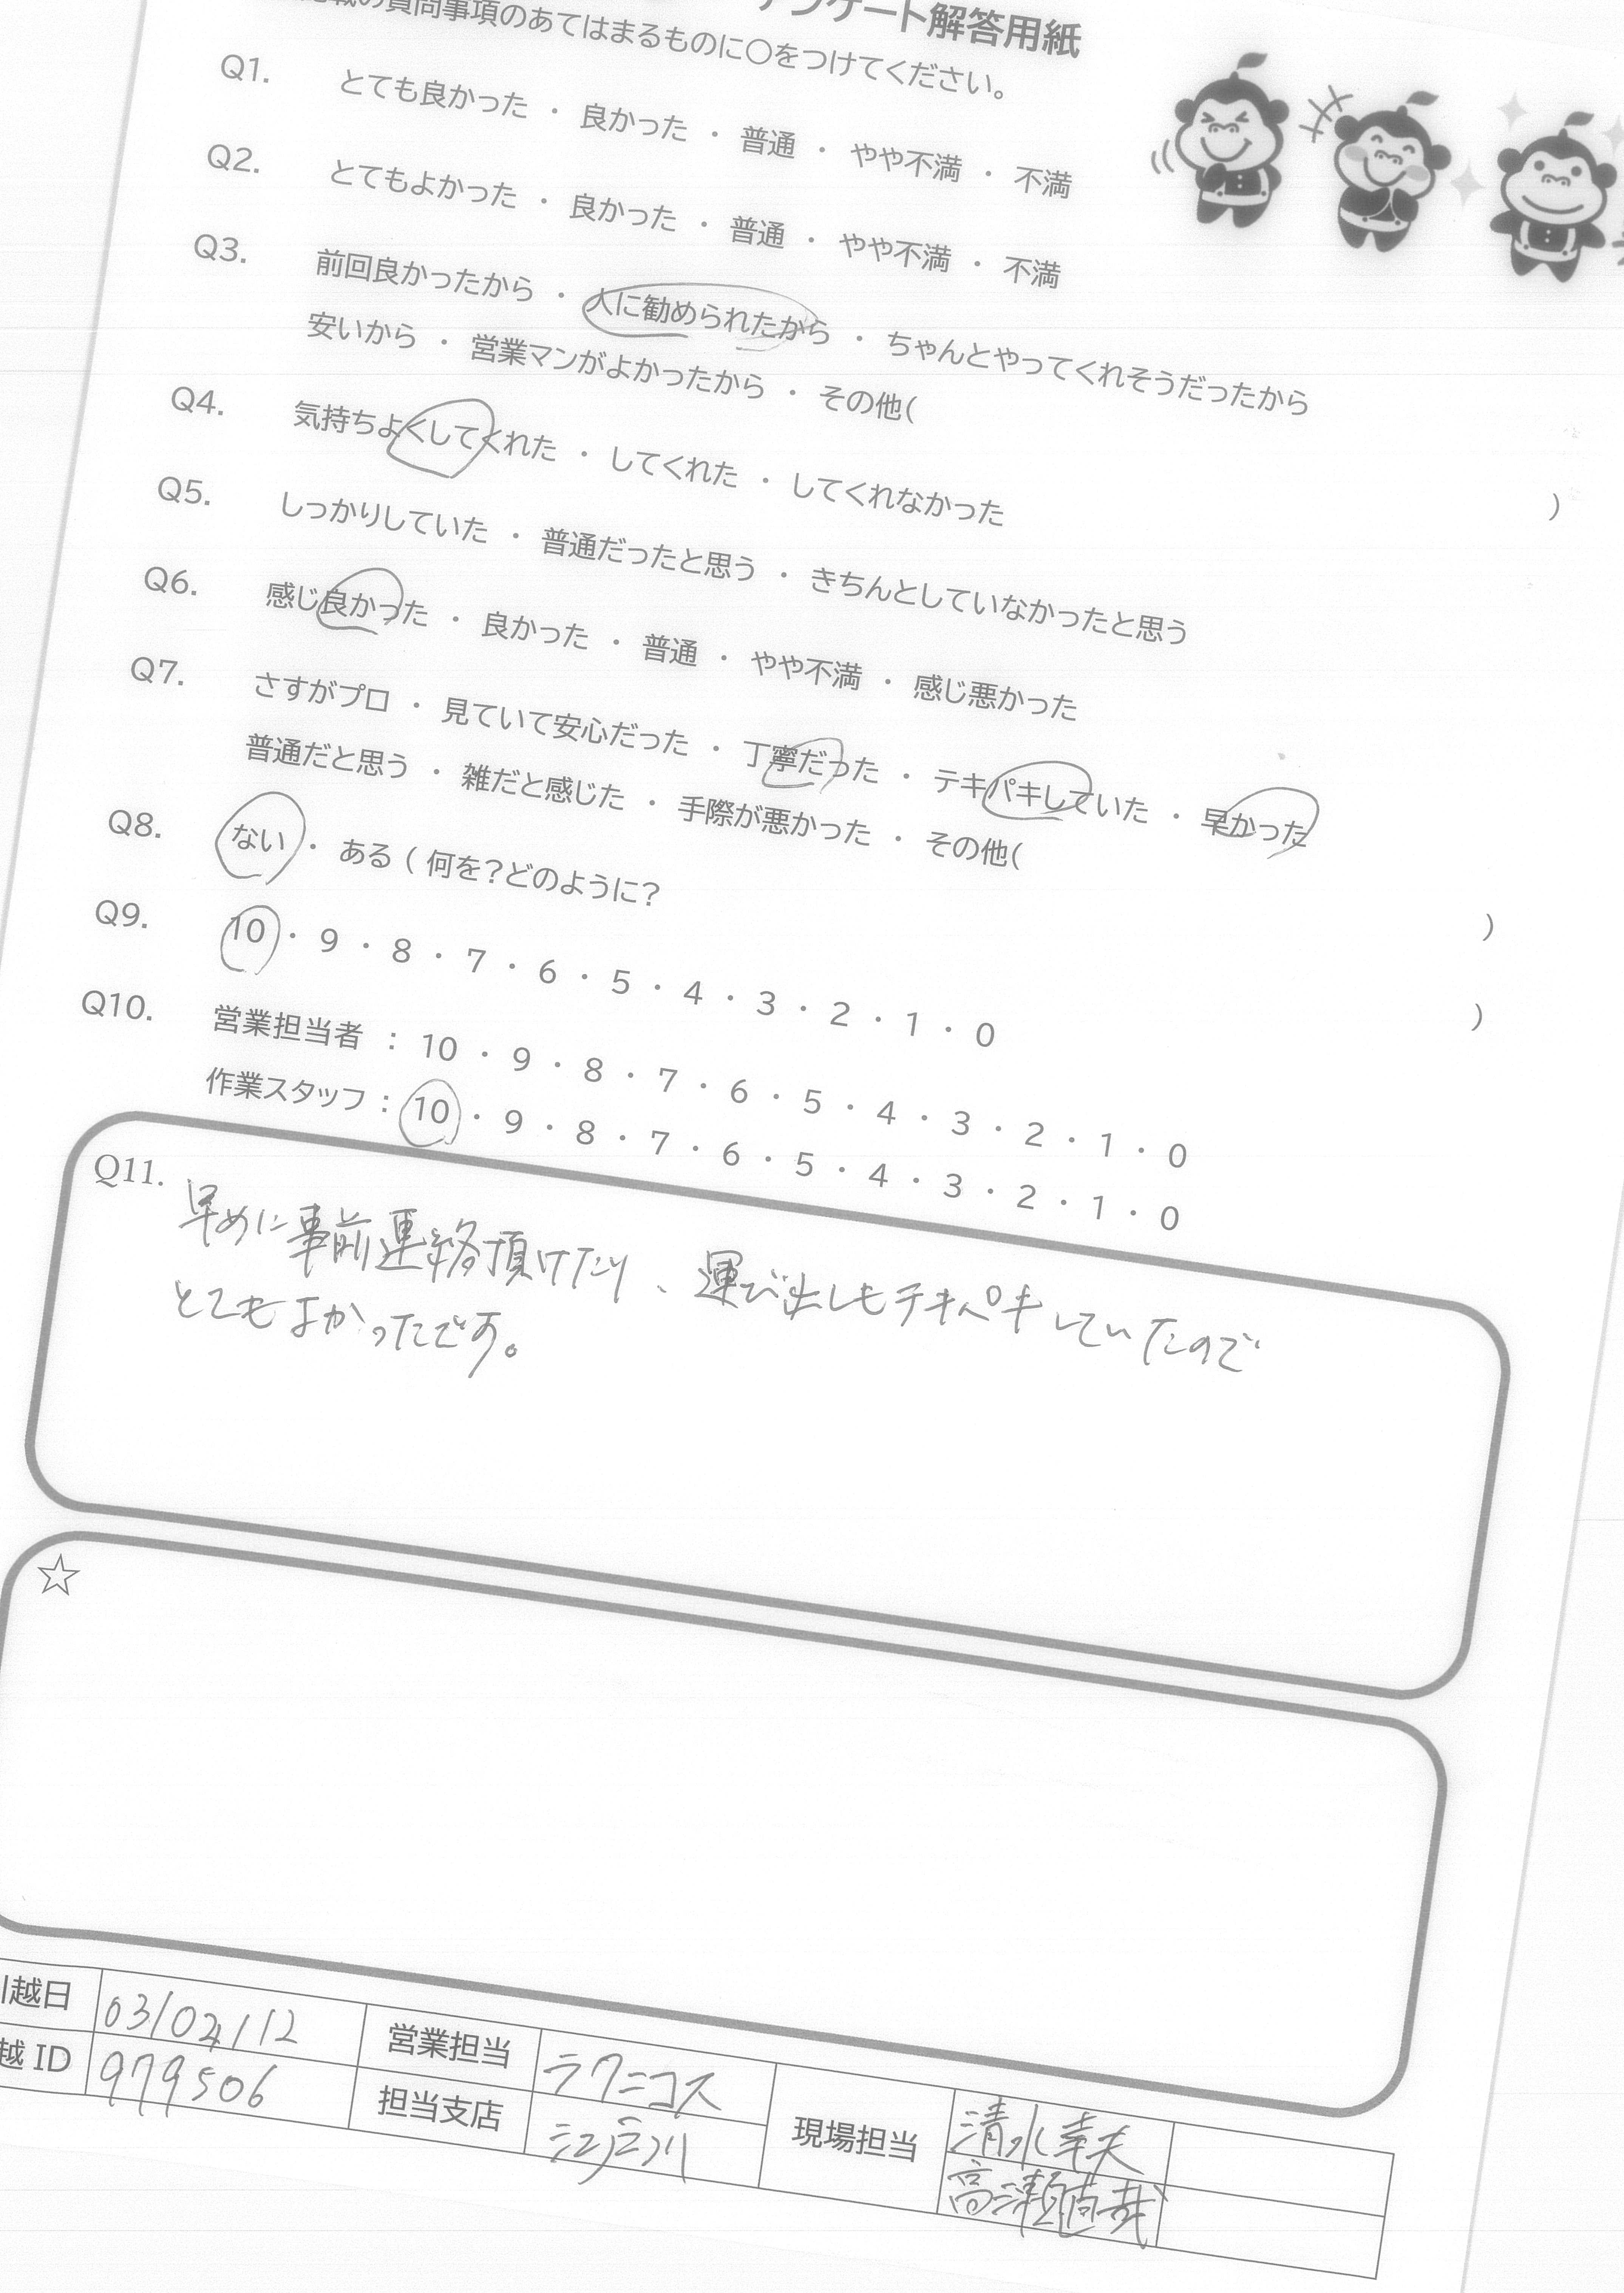 アンケート解答用紙
記載の質問事項のあてはまるものに〇をつけてください。
Q1. とても良かった ・ 良かった ・ 普通 ・ やや不満 ・ 不満
Q2. とてもよかった ・ 良かった ・ 普通 ・ やや不満 ・ 不満
Q3. 前回良かったから ・ 人に勧められたから ・ ちゃんとやってくれそうだったから
安いから ・ 営業マンがよかったから ・ その他( )
Q4. 気持ちよくしてくれた ・ してくれた ・ してくれなかった
Q5. しっかりしていた ・ 普通だったと思う ・ きちんとしていなかったと思う
Q6. 感じ良かった ・ 良かった ・ 普通 ・ やや不満 ・ 感じ悪かった
Q7. さすがプロ ・ 見ていて安心だった ・ 丁寧だった ・ テキパキしていた ・ 早かった
普通だと思う ・ 雑だと感じた ・ 手際が悪かった ・ その他( )
Q8. ない ・ ある ( 何を?どのように? )
Q9. 10 ・ 9 ・ 8 ・ 7 ・ 6 ・ 5 ・ 4 ・ 3 ・ 2 ・ 1 ・ 0
Q10. 営業担当者 : 10 ・ 9 ・ 8 ・ 7 ・ 6 ・ 5 ・ 4 ・ 3 ・ 2 ・ 1 ・ 0
作業スタッフ : 10 ・ 9 ・ 8 ・ 7 ・ 6 ・ 5 ・ 4 ・ 3 ・ 2 ・ 1 ・ 0
Q11. 早めに事前連絡頂けたり、運び出しもテキパキしていたので
とてもよかったです。
☆
引越日 03/02/12 営業担当 ラクニコス 現場担当 清水幸夫
越ID 979506 担当支店 江戸川 高瀬尚哉